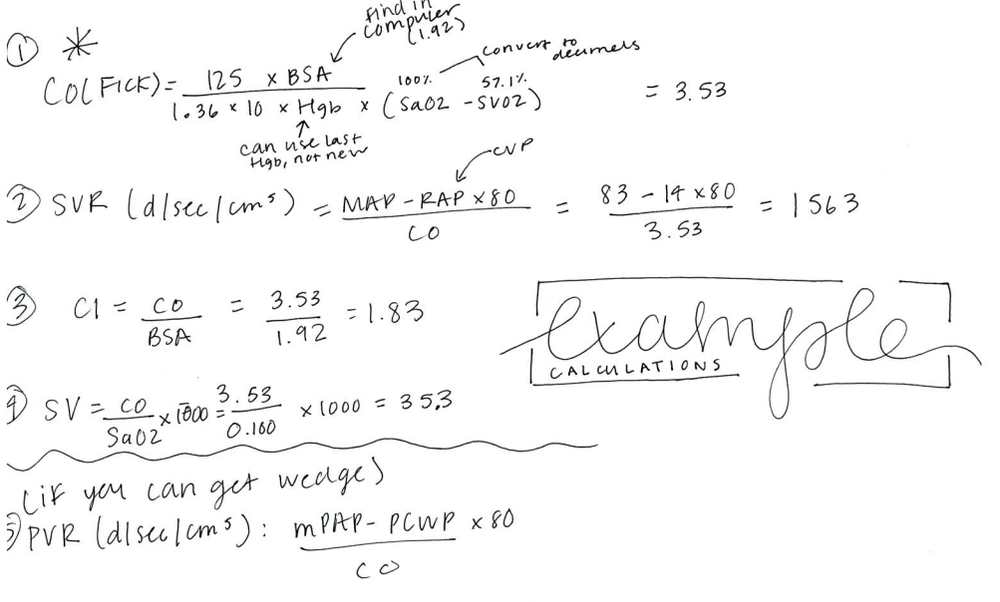 find in
computer
(1.92)
① *
convert to
decimels
100% 57.1%
CO(FICK) = 125 × BSA / 1.36 × 10 × Hgb × (SaO2 - SVO2) = 3.53
can use last
Hgb, not new
CVP
② SVR (d/sec/cm⁵) = MAP - RAP × 80 / CO = 83 - 14 × 80 / 3.53 = 1563
③ CI = CO / BSA = 3.53 / 1.92 = 1.83
example
CALCULATIONS
④ SV = CO / SaO2 × 1000 = 3.53 / 0.100 × 1000 = 35.3
(if you can get wedge)
⑤ PVR (d/sec/cm⁵): mPAP - PCWP × 80 / CO